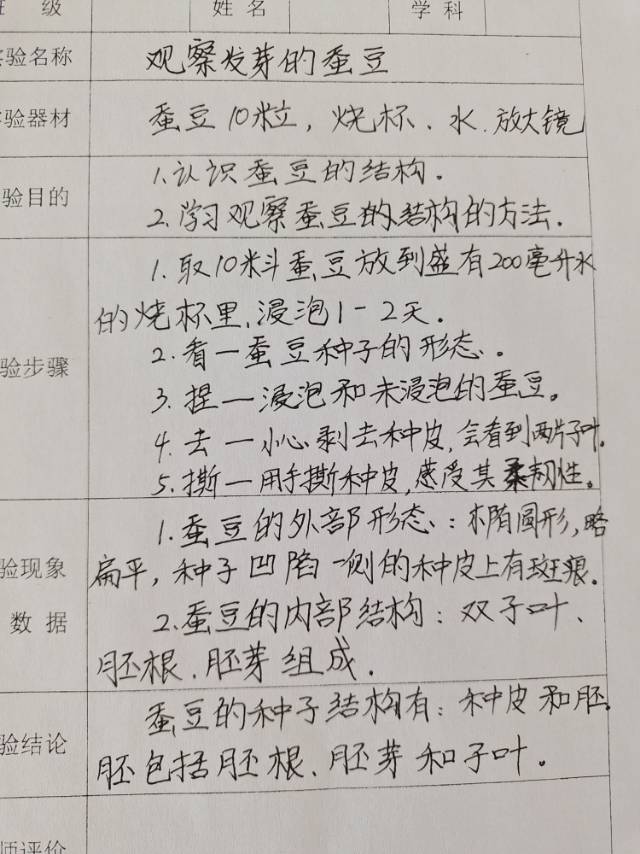 级 姓名 学科
验名称 观察发芽的蚕豆
验器材 蚕豆10粒，烧杯、水、放大镜
验目的 1.认识蚕豆的结构.
2.学习观察蚕豆的结构的方法.
验步骤 1.取10料蚕豆放到盛有200毫升水
的烧杯里,浸泡1-2天.
2.看一蚕豆种子的形态.
3.捏一浸泡和未浸泡的蚕豆。
4.去一小心剥去种皮,会看到两片子叶.
5.撕一用手撕种皮,感受其柔韧性。
验现象 1.蚕豆的外部形态:椭圆形,略
扁平,种子凹陷一侧的种皮上有斑痕.
数据 2.蚕豆的内部结构:双子叶、
胚根、胚芽组成.
验结论 蚕豆的种子结构有:种皮和胚
胚包括胚根、胚芽和子叶。
师评价